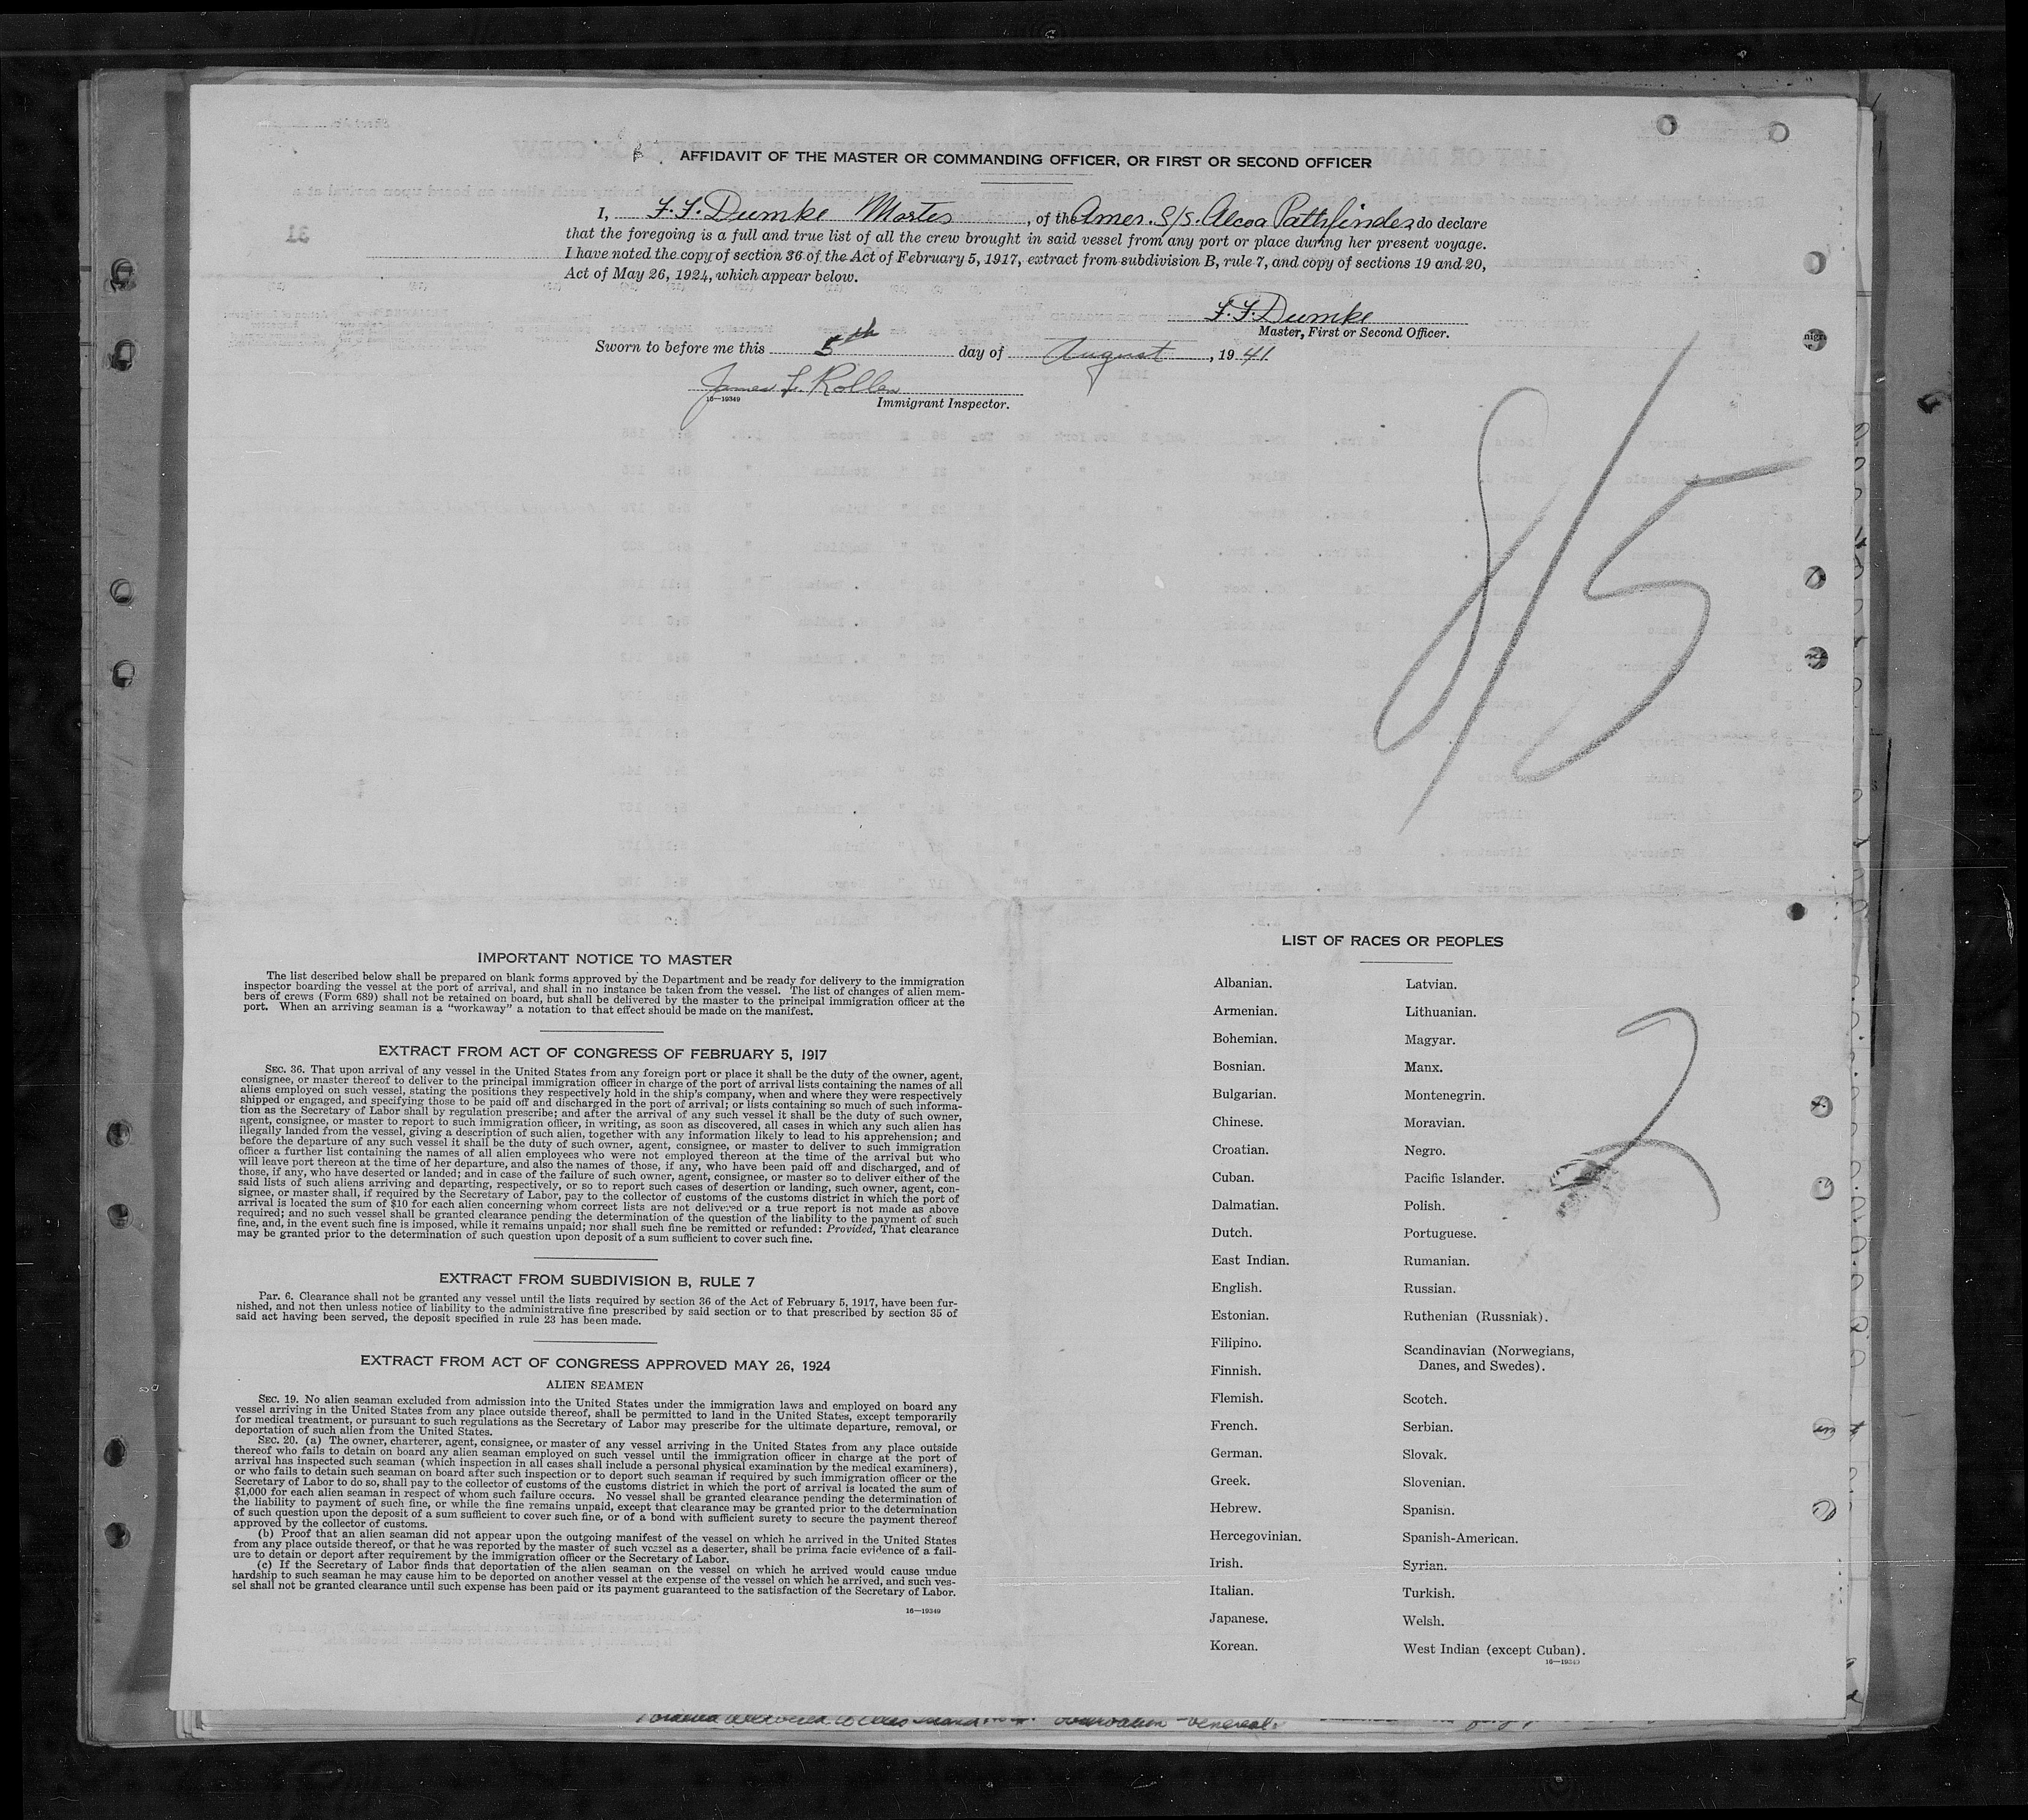 AFFIDAVIT OF THE MASTER OR COMMANDING OFFICER, OR FIRST OR SECOND OFFICER
I, F. F. Dumke Master, of the Amer. S/S. Alcoa Pathfinder, do declare
that the foregoing is a full and true list of all the crew brought in said vessel from any port or place during her present voyage.
I have noted the copy of section 36 of the Act of February 5, 1917, extract from subdivision B, rule 7, and copy of sections 19 and 20,
Act of May 26, 1924, which appear below.
F. F. Dumke
Master, First or Second Officer.
Sworn to before me this 5th day of August, 1941
James L. Rollen
16—19349
Immigrant Inspector.
8/5
IMPORTANT NOTICE TO MASTER
The list described below shall be prepared on blank forms approved by the Department and be ready for delivery to the immigration
inspector boarding the vessel at the port of arrival, and shall in no instance be taken from the vessel. The list of changes of alien mem-
bers of crews (Form 689) shall not be retained on board, but shall be delivered by the master to the principal immigration officer at the
port. When an arriving seaman is a "workaway" a notation to that effect should be made on the manifest.
EXTRACT FROM ACT OF CONGRESS OF FEBRUARY 5, 1917
SEC. 36. That upon arrival of any vessel in the United States from any foreign port or place it shall be the duty of the owner, agent,
consignee, or master thereof to deliver to the principal immigration officer in charge of the port of arrival lists containing the names of all
aliens employed on such vessel, stating the positions they respectively hold in the ship's company, when and where they were respectively
shipped or engaged, and specifying those to be paid off and discharged in the port of arrival; or lists containing so much of such informa-
tion as the Secretary of Labor shall by regulation prescribe; and after the arrival of any such vessel it shall be the duty of such owner,
agent, consignee, or master to report to such immigration officer, in writing, as soon as discovered, all cases in which any such alien has
illegally landed from the vessel, giving a description of such alien, together with any information likely to lead to his apprehension; and
before the departure of any such vessel it shall be the duty of such owner, agent, consignee, or master to deliver to such immigration
officer a further list containing the names of all alien employees who were not employed thereon at the time of the arrival but who
will leave port thereon at the time of her departure, and also the names of those, if any, who have been paid off and discharged, and of
those, if any, who have deserted or landed; and in case of the failure of such owner, agent, consignee, or master so to deliver either of the
said lists of such aliens arriving and departing, respectively, or so to report such cases of desertion or landing, such owner, agent, con-
signee, or master shall, if required by the Secretary of Labor, pay to the collector of customs of the customs district in which the port of
arrival is located the sum of $10 for each alien concerning whom correct lists are not delivered or a true report is not made as above
required; and no such vessel shall be granted clearance pending the determination of the question of the liability to the payment of such
fine, and, in the event such fine is imposed, while it remains unpaid; nor shall such fine be remitted or refunded: Provided, That clearance
may be granted prior to the determination of such question upon deposit of a sum sufficient to cover such fine.
EXTRACT FROM SUBDIVISION B, RULE 7
Par. 6. Clearance shall not be granted any vessel until the lists required by section 36 of the Act of February 5, 1917, have been fur-
nished, and not then unless notice of liability to the administrative fine prescribed by said section or to that prescribed by section 35 of
said act having been served, the deposit specified in rule 23 has been made.
EXTRACT FROM ACT OF CONGRESS APPROVED MAY 26, 1924
ALIEN SEAMEN
SEC. 19. No alien seaman excluded from admission into the United States under the immigration laws and employed on board any
vessel arriving in the United States from any place outside thereof, shall be permitted to land in the United States, except temporarily
for medical treatment, or pursuant to such regulations as the Secretary of Labor may prescribe for the ultimate departure, removal, or
deportation of such alien from the United States.
SEC. 20. (a) The owner, charterer, agent, consignee, or master of any vessel arriving in the United States from any place outside
thereof who fails to detain on board any alien seaman employed on such vessel until the immigration officer in charge at the port of
arrival has inspected such seaman (which inspection in all cases shall include a personal physical examination by the medical examiners),
or who fails to detain such seaman on board after such inspection or to deport such seaman if required by such immigration officer or the
Secretary of Labor to do so, shall pay to the collector of customs of the customs district in which the port of arrival is located the sum of
$1,000 for each alien seaman in respect of whom such failure occurs. No vessel shall be granted clearance pending the determination of
the liability to payment of such fine, or while the fine remains unpaid, except that clearance may be granted prior to the determination
of such question upon the deposit of a sum sufficient to cover such fine, or of a bond with sufficient surety to secure the payment thereof
approved by the collector of customs.
(b) Proof that an alien seaman did not appear upon the outgoing manifest of the vessel on which he arrived in the United States
from any place outside thereof, or that he was reported by the master of such vessel as a deserter, shall be prima facie evidence of a fail-
ure to detain or deport after requirement by the immigration officer or the Secretary of Labor.
(c) If the Secretary of Labor finds that deportation of the alien seaman on the vessel on which he arrived would cause undue
hardship to such seaman he may cause him to be deported on another vessel at the expense of the vessel on which he arrived, and such ves-
sel shall not be granted clearance until such expense has been paid or its payment guaranteed to the satisfaction of the Secretary of Labor.
16—19349
LIST OF RACES OR PEOPLES
Albanian.
Armenian.
Bohemian.
Bosnian.
Bulgarian.
Chinese.
Croatian.
Cuban.
Dalmatian.
Dutch.
East Indian.
English.
Estonian.
Filipino.
Finnish.
Flemish.
French.
German.
Greek.
Hebrew.
Hercegovinian.
Irish.
Italian.
Japanese.
Korean.
Latvian.
Lithuanian.
Magyar.
Manx.
Montenegrin.
Moravian.
Negro.
Pacific Islander.
Polish.
Portuguese.
Rumanian.
Russian.
Ruthenian (Russniak).
Scandinavian (Norwegians,
Danes, and Swedes).
Scotch.
Serbian.
Slovak.
Slovenian.
Spanish.
Spanish-American.
Syrian.
Turkish.
Welsh.
West Indian (except Cuban).
16—19349
2